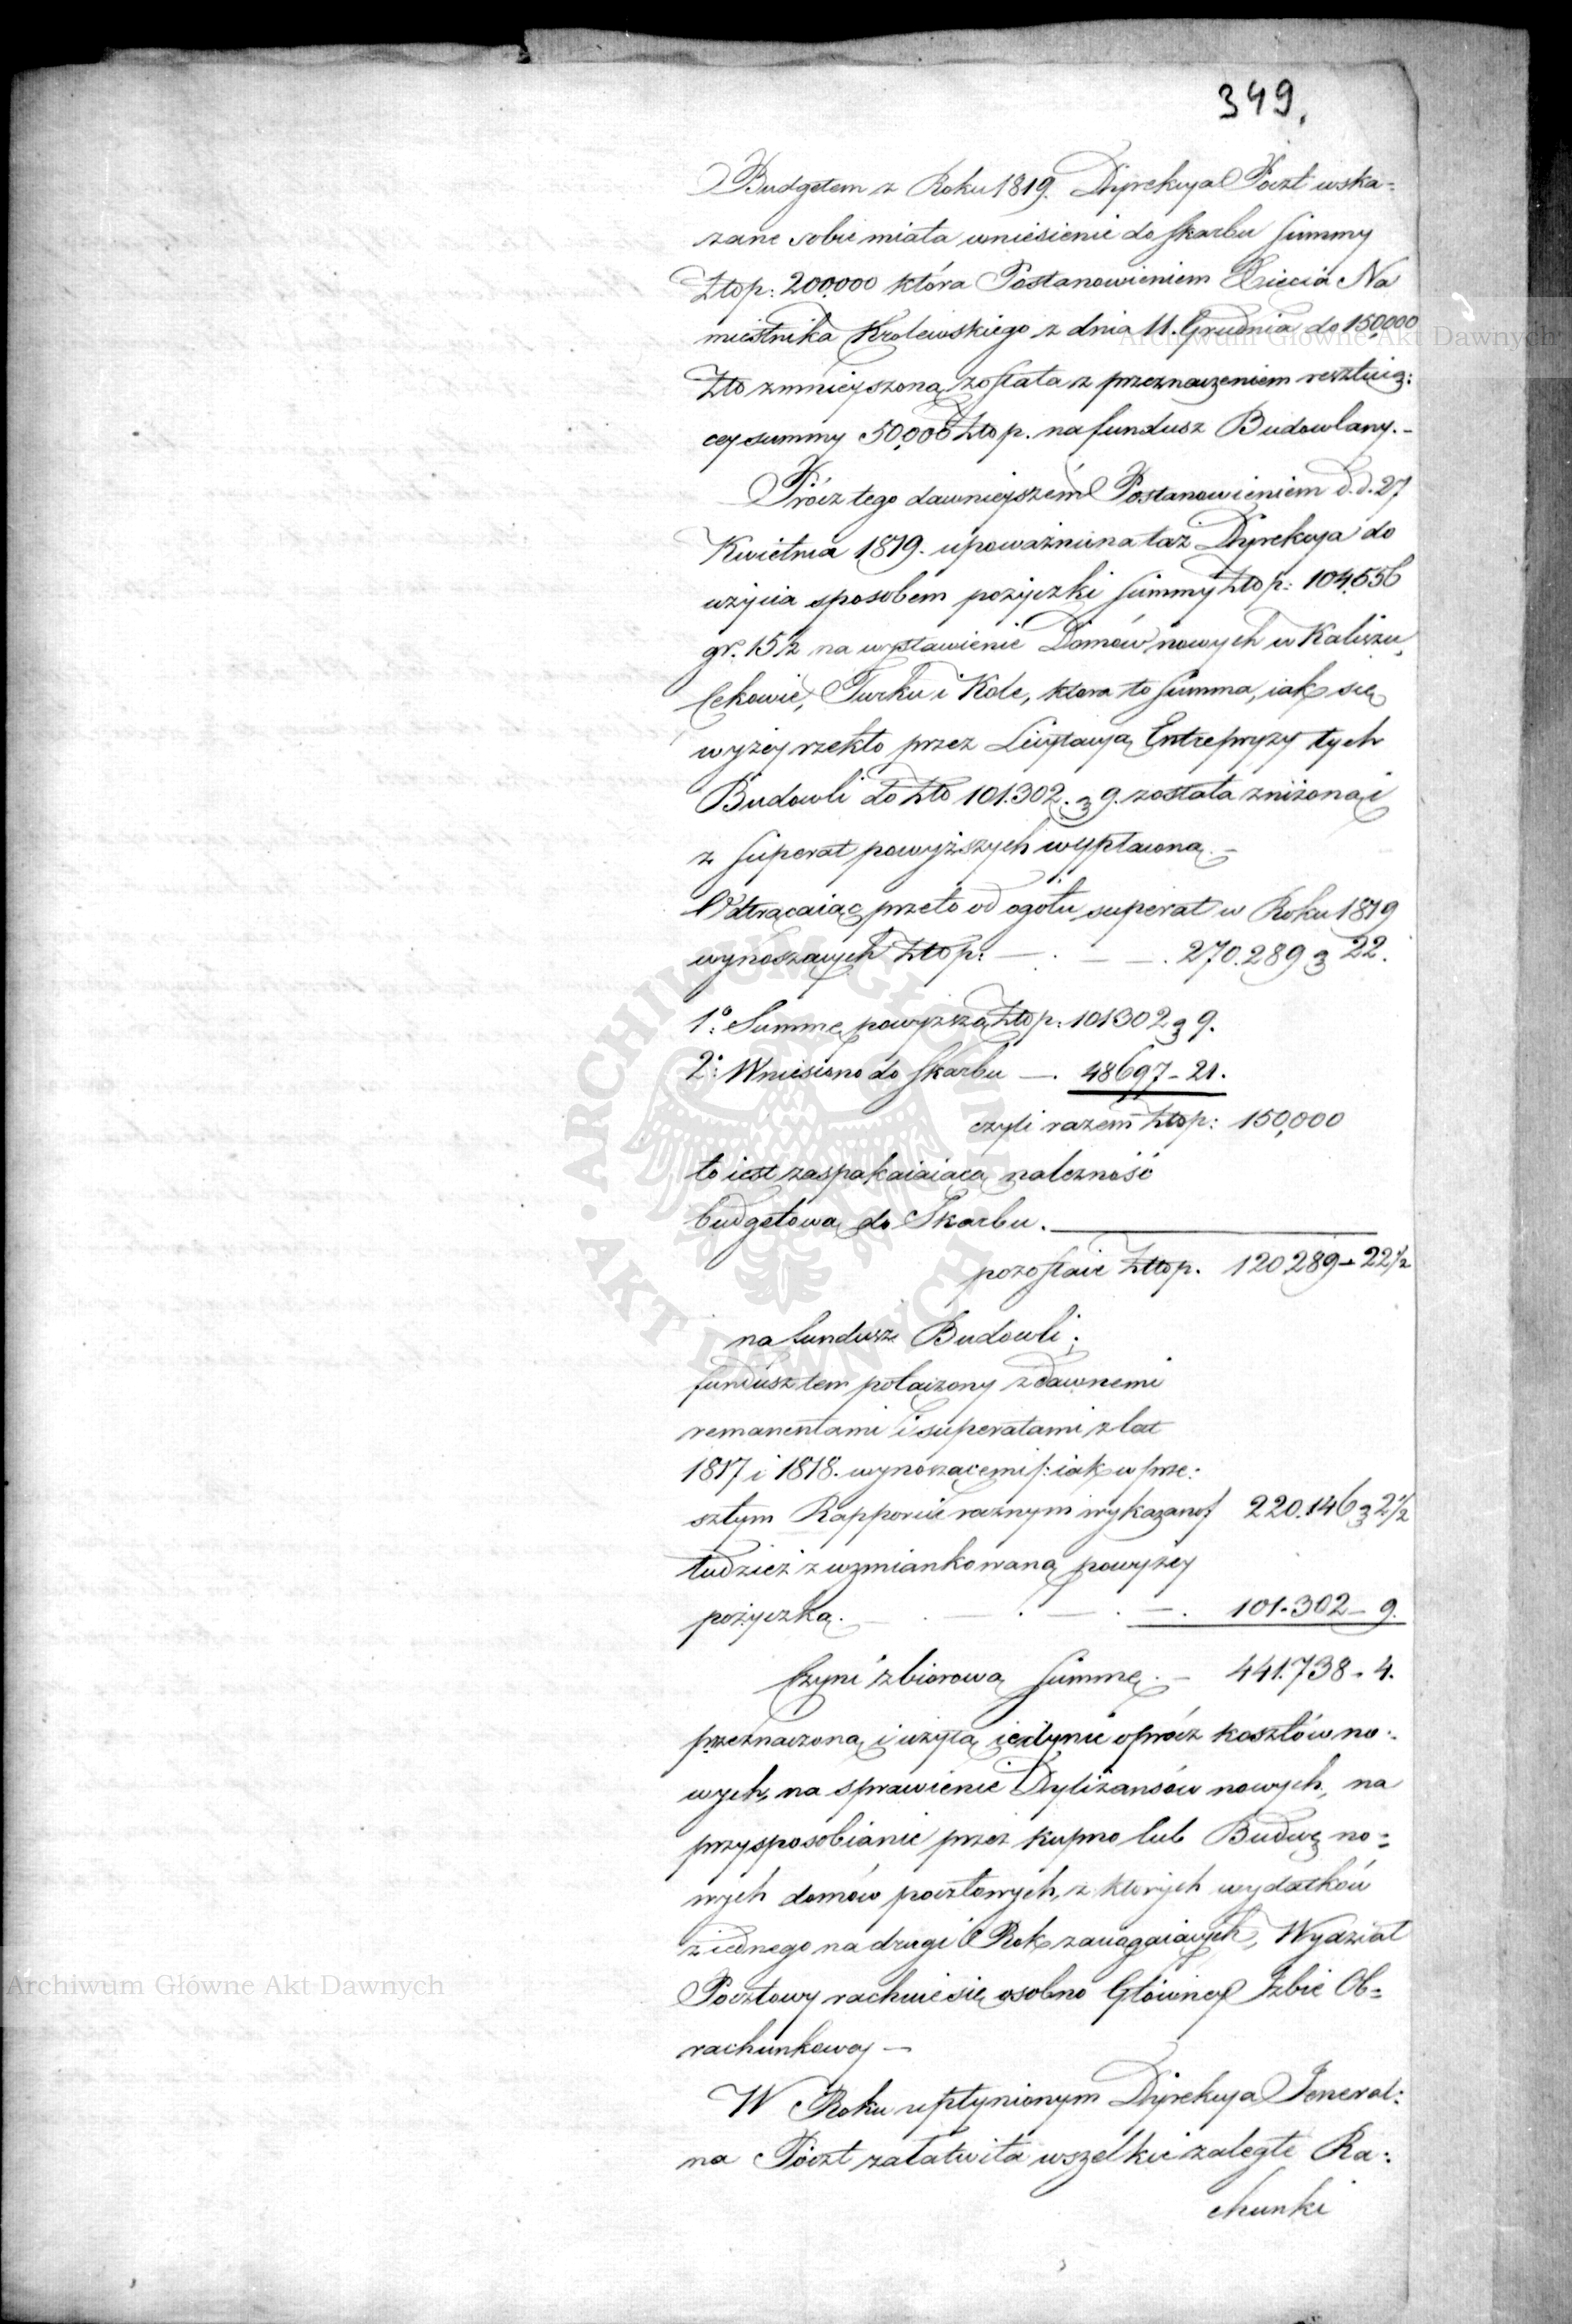 349.
Budgetem z Roku 1819. Dyrekcya Poczt wska=
zane sobie miała wniesienie do skarbu Summy
Złop: 200,000 która Postanowieniem Xięcia Na
miestnika Krolewskiego z dnia 11. Grudnia do 150,000
Zło zmnieyszoną została z przeznaczeniem resztuią:
cey summy 50,000 Złop. na fundusz Budowlany.-
Prócz tego dawnieyszém Postanowieniem d.d. 27
Kwietnia 1819. upoważniona taż Dyrekcya do
użycia sposobem pożyczki Summy Złop: 104,556
gr. 15½ na wystawienie Domów nowych w Kaliszu,
Cekowie, Turku i Kole, ktora to Summa, iak się
wyżey rzekło przez Licytacyą Entrepryzy tych
Budowli do Zło 101.302. 3 9. została zniżoną i
z Superat powyższych wypłaconą.-
Odtrącaiąc przeto od ogółu superat w Roku 1819
wynoszących Złop. — . — — . 270.289 3 22.
1º: Summę powyższą Złop: 101302 3 9.
2º: Wniesiono do Skarbu — . 48697 - 21.
czyli razem Złop: 150,000
to iest zaspakaiaiącą należność
budgetową do Skarbu.
pozostaie Złop. 120289 - 22½
na fundusz Budowli;
fundusz ten połączony z dawnemi
remanentami i superatami z lat
1817 i 1818. wynoszącemi /: iak w prze:
szłym Rapporcie rocznym wykazano/ 220.146 3 2½
tudzież z wzmiankowaną powyżey
pożyczką. — . — . — . — . 101.302 - 9.
Czyni zbiorową Summę. - 441.738 - 4.
przeznaczoną i użytą iedynie oprócz kosztów no:
wych, na sprawienie Dyliżansów nowych, na
przysposobianie przez kupno lub Budowę no=
wych domów pocztowych, z ktorych wydatków
z iednego na drugi Rok zaciągaiących, Wydział
Pocztowy rachuie się osobno Głównéy Izbie Ob=
rachunkowey —
W Roku upłynionym Dyrekcya Jeneral:
na Poczt załatwiła wszelkie zaległe Ra:
chunki
Archiwum Główne Akt Dawnych
Archiwum Główne Akt Dawnych
ARCHIWUM GŁÓWNE AKT DAWNYCH